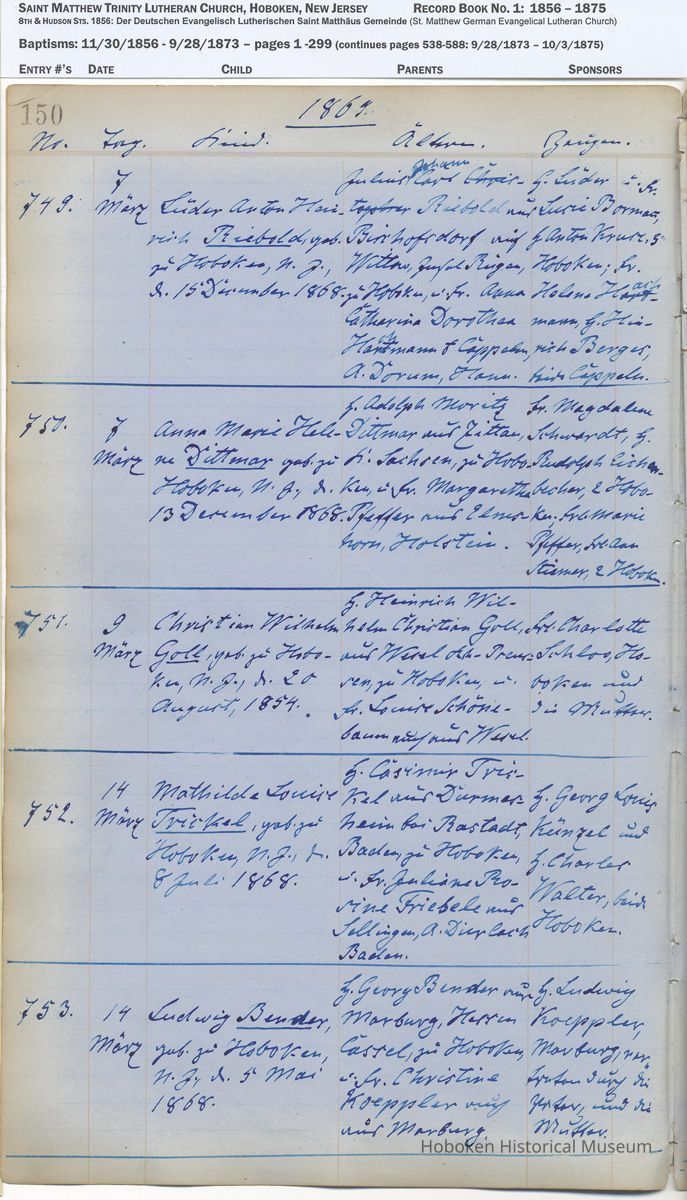 SAINT MATTHEW TRINITY LUTHERAN CHURCH, HOBOKEN, NEW JERSEY RECORD BOOK NO. 1: 1856 – 1875
8TH & HUDSON STS. 1856: Der Deutschen Evangelisch Lutherischen Saint Matthäus Gemeinde (St. Matthew German Evangelical Lutheran Church)
Baptisms: 11/30/1856 - 9/28/1873 – pages 1 -299 (continues pages 538-588: 9/28/1873 – 10/3/1875)
ENTRY #'S DATE CHILD PARENTS SPONSORS
150
1869.
No. Tag. Kind. Ältern. Zeugen.
749.
7
März
Lüder Anton Hein-
rich Riebold, geb.
zu Hoboken, N. J.,
d. 15 December 1868.
Johann
Julius Carl Chris-
topher Riebold aus
Bischofsdorf auf
Wittow, Insel Rügen,
zu Hoboken, u. Fr. Anna
Catharina Dorothea
Hartmann v. Cappeln,
A. Dorum, Hann.
H. Lüder u. Fr.
Lucie Borman,
H. Anton Kruse, 3
Hoboken; Fr.
Helene
mann, H. Hin-
rich Berges,
beide Cappeln.
750.
7
März
Anna Marie Hele-
ne Dittmar geb. zu
Hoboken, N. J., d.
13 December 1868.
H. Adolph Moritz
Dittmar aus Zittau,
K. Sachsen, zu Hobo-
ken, u. Fr. Margaretha
Pfeffer aus Elms-
horn, Holstein.
Fr. Magdalena
Schwardt, H.
Rudolph Eichen-
becher, 2 Hobo-
ken, Frl. Marie
Pfeffer, Frl. Ann
Stiemer, 2 Hoboken.
751.
9
März
Christian Wilhelm
Goll, geb. zu Hobo-
ken, N. J., d. 20
August, 1854.
H. Heinrich Wil-
helm Christian Goll,
aus Wesel Rh. Preus-
sen, zu Hoboken, u.
Fr. Louise Schöne-
baum auch aus Wesel.
Frl. Charlotte
Schloo, Ho-
boken und
die Mutter.
752.
14
März
Mathilde Louise
Trickel, geb. zu
Hoboken, N. J., d.
8 Juli 1868.
H. Casimir Tric-
kel aus Durmers-
heim bei Rastadt,
Baden, zu Hoboken,
u. Fr. Juliane Ro-
sine Friebele aus
Sellingen, A. Durlach
Baden.
H. Georg Louis
Künzel und
H. Charles
Walter, beide
Hoboken.
753.
14
März
Ludwig Bender,
geb. zu Hoboken,
N. J., d. 5 Mai
1868.
H. Georg Bender aus
Marburg, Hessen
Cassel, zu Hoboken,
u. Fr. Christine
Koeppler auch
aus Marburg.
H. Ludwig
Koeppler,
Marburg, ver-
treten durch die
Vater, und die
Mutter.
Hoboken Historical Museum